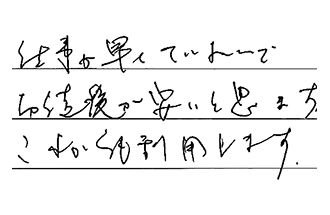 仕事が早くていねいで
切結後が安いと思ます
これから利用します.